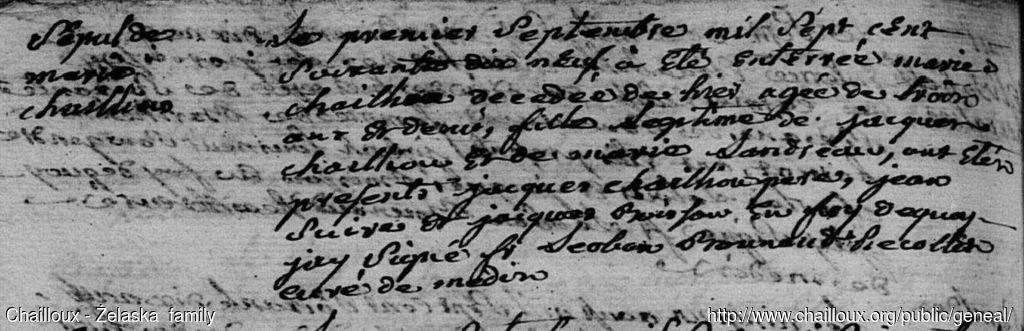 Sépul de
marie
chaillou
Le premier Septembre mil Sept cent
Soixante dix neuf à été enterrée marie
chailhou decedée de hier agée de trois
ans et demi, fille Legitime de jacques
chailhou et de marie Landreau, ont étés
présents jacques chailhou pere, jean
Suire et jacques En foy dequoy
jay Signé fr Leobon Recollet
curé de medin
Chailloux - Żelaska family
http://www.chailloux.org/public/geneal/